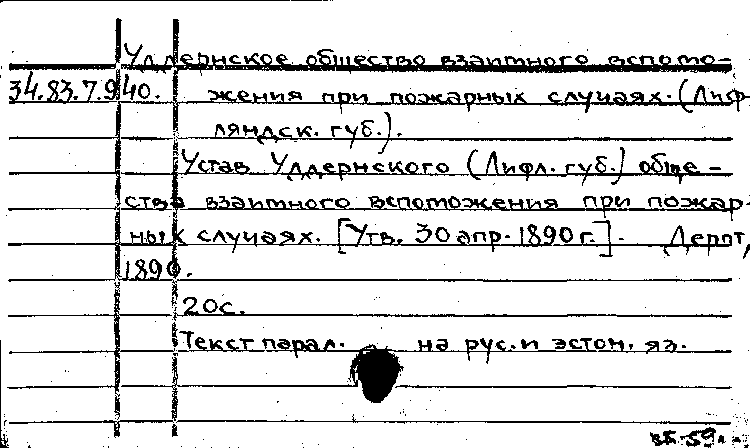 Уддернское общество взаимного вспомо-
34.83.7.940. жения при пожарных случаях. (Лиф-
ляндск. губ.).
Устав Уддернского (Лифл. губ.) обще-
ства взаимного вспоможения при пожар-
ных случаях. [Утв. 30 апр. 1890 г.]. Дерпт,
1890.
20с.
Текст парал. на рус. и эстон. яз.